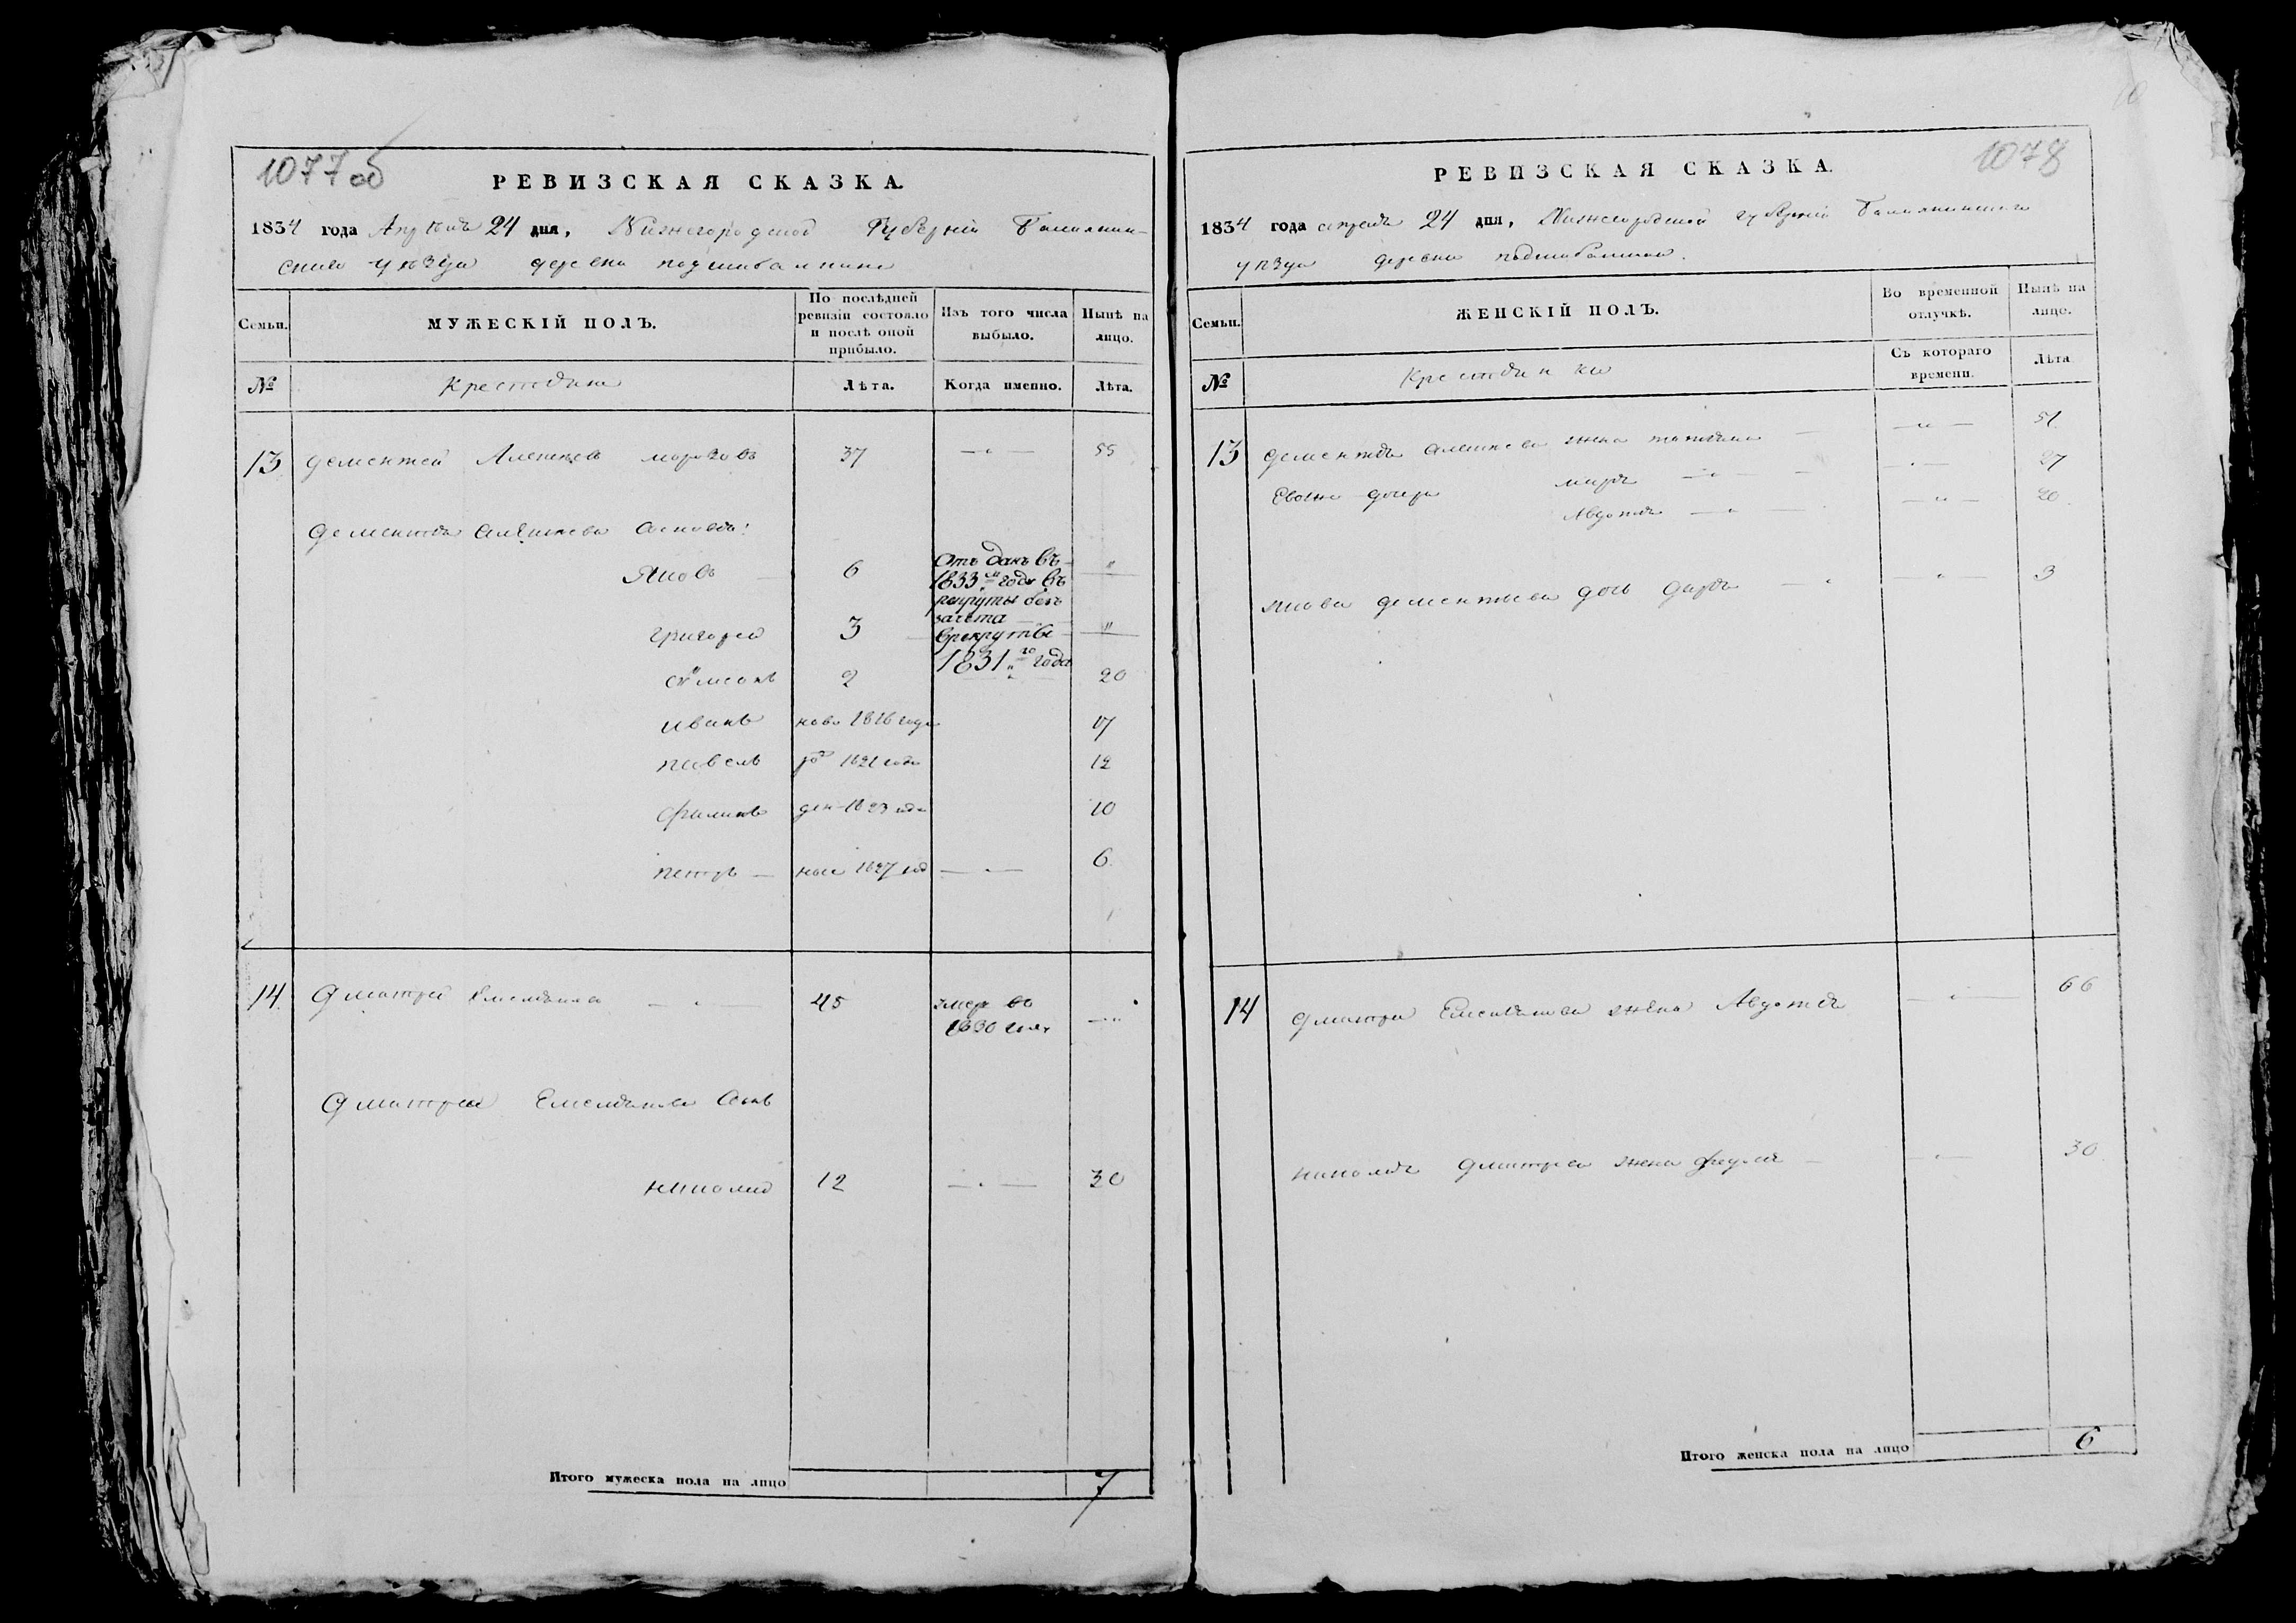 1077 об
РЕВИЗСКАЯ СКАЗКА.
1834 года Апреля 24 дня, Нижегородской Губернии Балахнин-
скаго уѣзда деревни подшивалкина
Семьи. МУЖЕСКІЙ ПОЛЪ. По послѣдней ревизіи состояло и послѣ оной прибыло. Изъ того числа выбыло. Нынѣ на лицо.
№ Крестьяне Лѣта. Когда именно. Лѣта.
13 дементей морозовъ 37 — " — 55
дементья сыновья:
Яковъ — 6 Отъ данъ въ 1833м годѣ въ рекруты безъ зачета — "
григорей 3 Врекрутъ 1831го года "
семионъ 2 " 20
иванъ ново 1816 года 17
павелъ ро 1821 года 12
филипъ ден 1823 года 10
петръ — ные 1827 год — " — 6
14 Дмитрей Емельяновъ — " — 45 умеръ въ 1830 году — "
Дмитрея Емельянова Сынъ
николай 12 — " — 30
Итого мужеска пола на лицо 7
1078
РЕВИЗСКАЯ СКАЗКА.
1834 года апреля 24 дня, Нижегородской губерніи Балахнинскаго
уѣзда деревни подшивалкина.
Семьи. ЖЕНСКІЙ ПОЛЪ. Во временной отлучкѣ. Нынѣ на лице.
№ Крестьянки Съ котораго времени. Лѣта
13 дементья жена татьяна — — " — 51
Евоже дочери марья — " — 27
Авдотья — " — — " — 20
якова дементьева дочь дарья — " — " — 3
14 Дмитрия Емельянова жена Авдотья — " — 66
николая Дмитрева жена — " — 30
Итого женска пола на лицо 6